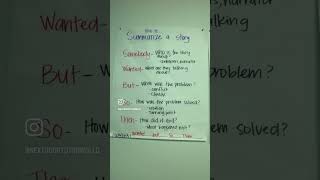 How to
Summarize a story
Somebody- Who is the story
about?
-characters, narrator
Wanted- What are they talking
about?
But- What was the problem?
-conflict
So- How was the problem solved?
-solution
-turning point
Then- How did it end?
-What happened next?
Somebody wanted but so Then
Wanted-
, narrator
talking
But-
problem?
So-
How
m solved?